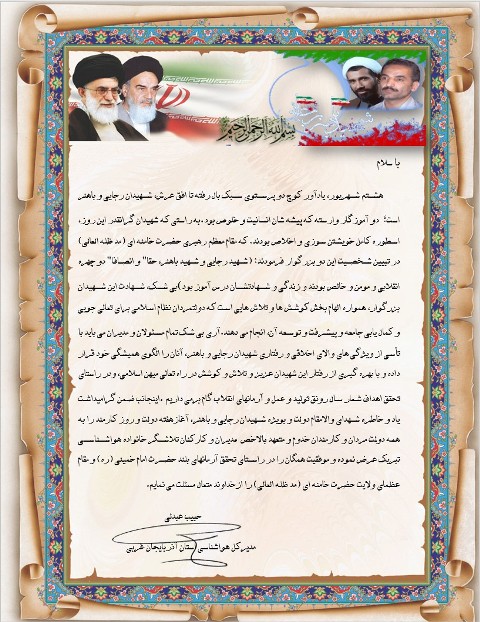 بسم الله الرحمن الرحیم
با سلام
هشتم شهریور، یادآور کوچ دو پرستوی سبک بال رفته تا افق عرش، شهیدان رجایی و باهنر
است؛ دو آموزگار وارسته که پیشه شان انسانیت و خلوص بود. به راستی که شهیدان گرانقدر این روز،
اسطوره کامل خویشتن سوزی و اخلاص بودند. که مقام معظم رهبری حضرت خامنه ای (مد ظله العالی)
در تبیین شخصیت این دو بزرگوار فرمودند: (شهید رجایی و شهید باهنر، حقا" و انصافا" دو چهره
انقلابی و مومن و خالص بودند و زندگی و شهادتشان درس آموز بود) بی شک، شهادت این شهیدان
بزرگوار، همواره الهام بخش کوشش ها و تلاش هایی است که دولتمردان نظام اسلامی برای تعالی جویی
و کمال یابی جامعه و پیشرفت و توسعه آن، انجام می دهند. آری بی شک تمام مسئولان و مدیران می باید با
تأسی از ویژگی های والای اخلاقی و رفتاری شهیدان رجایی و باهنر، آنان را الگوی همیشگی خود قرار
داده و با بهره گیری از رفتار این شهیدان عزیز و تلاش و کوشش در راه تعالی میهن اسلامی، و در راستای
تحقق اهداف شعار سال رونق تولید و عمل و آرمانهای انقلاب گام برمی داریم . اینجانب ضمن گرامیداشت
یاد و خاطره شهدای والامقام دولت و بویژه شهیدان رجایی و باهنر، آغاز هفته دولت و روز کارمند را به
همه دولت مردان و کارمندان خدوم و متعهد بالاخص مدیران و کارکنان تلاشگر خانواده هواشناسی
تبریک عرض نموده و موفقیت همگان را در راستای تحقق آرمانهای بلند حضرت امام خمینی (ره) و مقام
عظمای ولایت حضرت خامنه ای (مد ظله العالی) را از خداوند متعال مسئلت می نمایم.
حبیب عبدلی
مدیر کل هواشناسی استان آذربایجان غربی